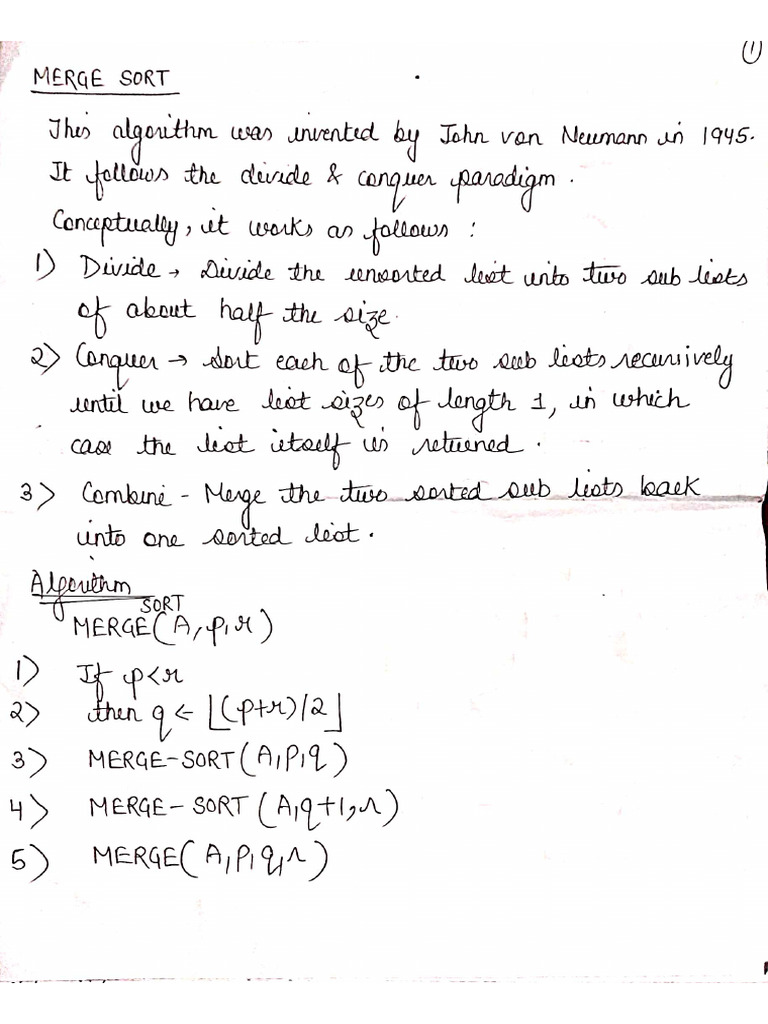 ①
MERGE SORT
This algorithm was invented by John von Neumann in 1945.
It follows the divide & conquer paradigm.
Conceptually, it works as follows :
1) Divide → Divide the unsorted list into two sub lists
of about half the size.
2) Conquer → Sort each of the two sub lists recursively
until we have list sizes of length 1, in which
case the list itself is returned.
3) Combine - Merge the two sorted sub lists back
into one sorted list.
Algorithm
SORT
MERGE(A, p, r)
1) If p<r
2) then q ← ⌊(p+r)/2⌋
3) MERGE-SORT(A, P, q)
4) MERGE-SORT (A, q+1, r)
5) MERGE(A, P, q, r)